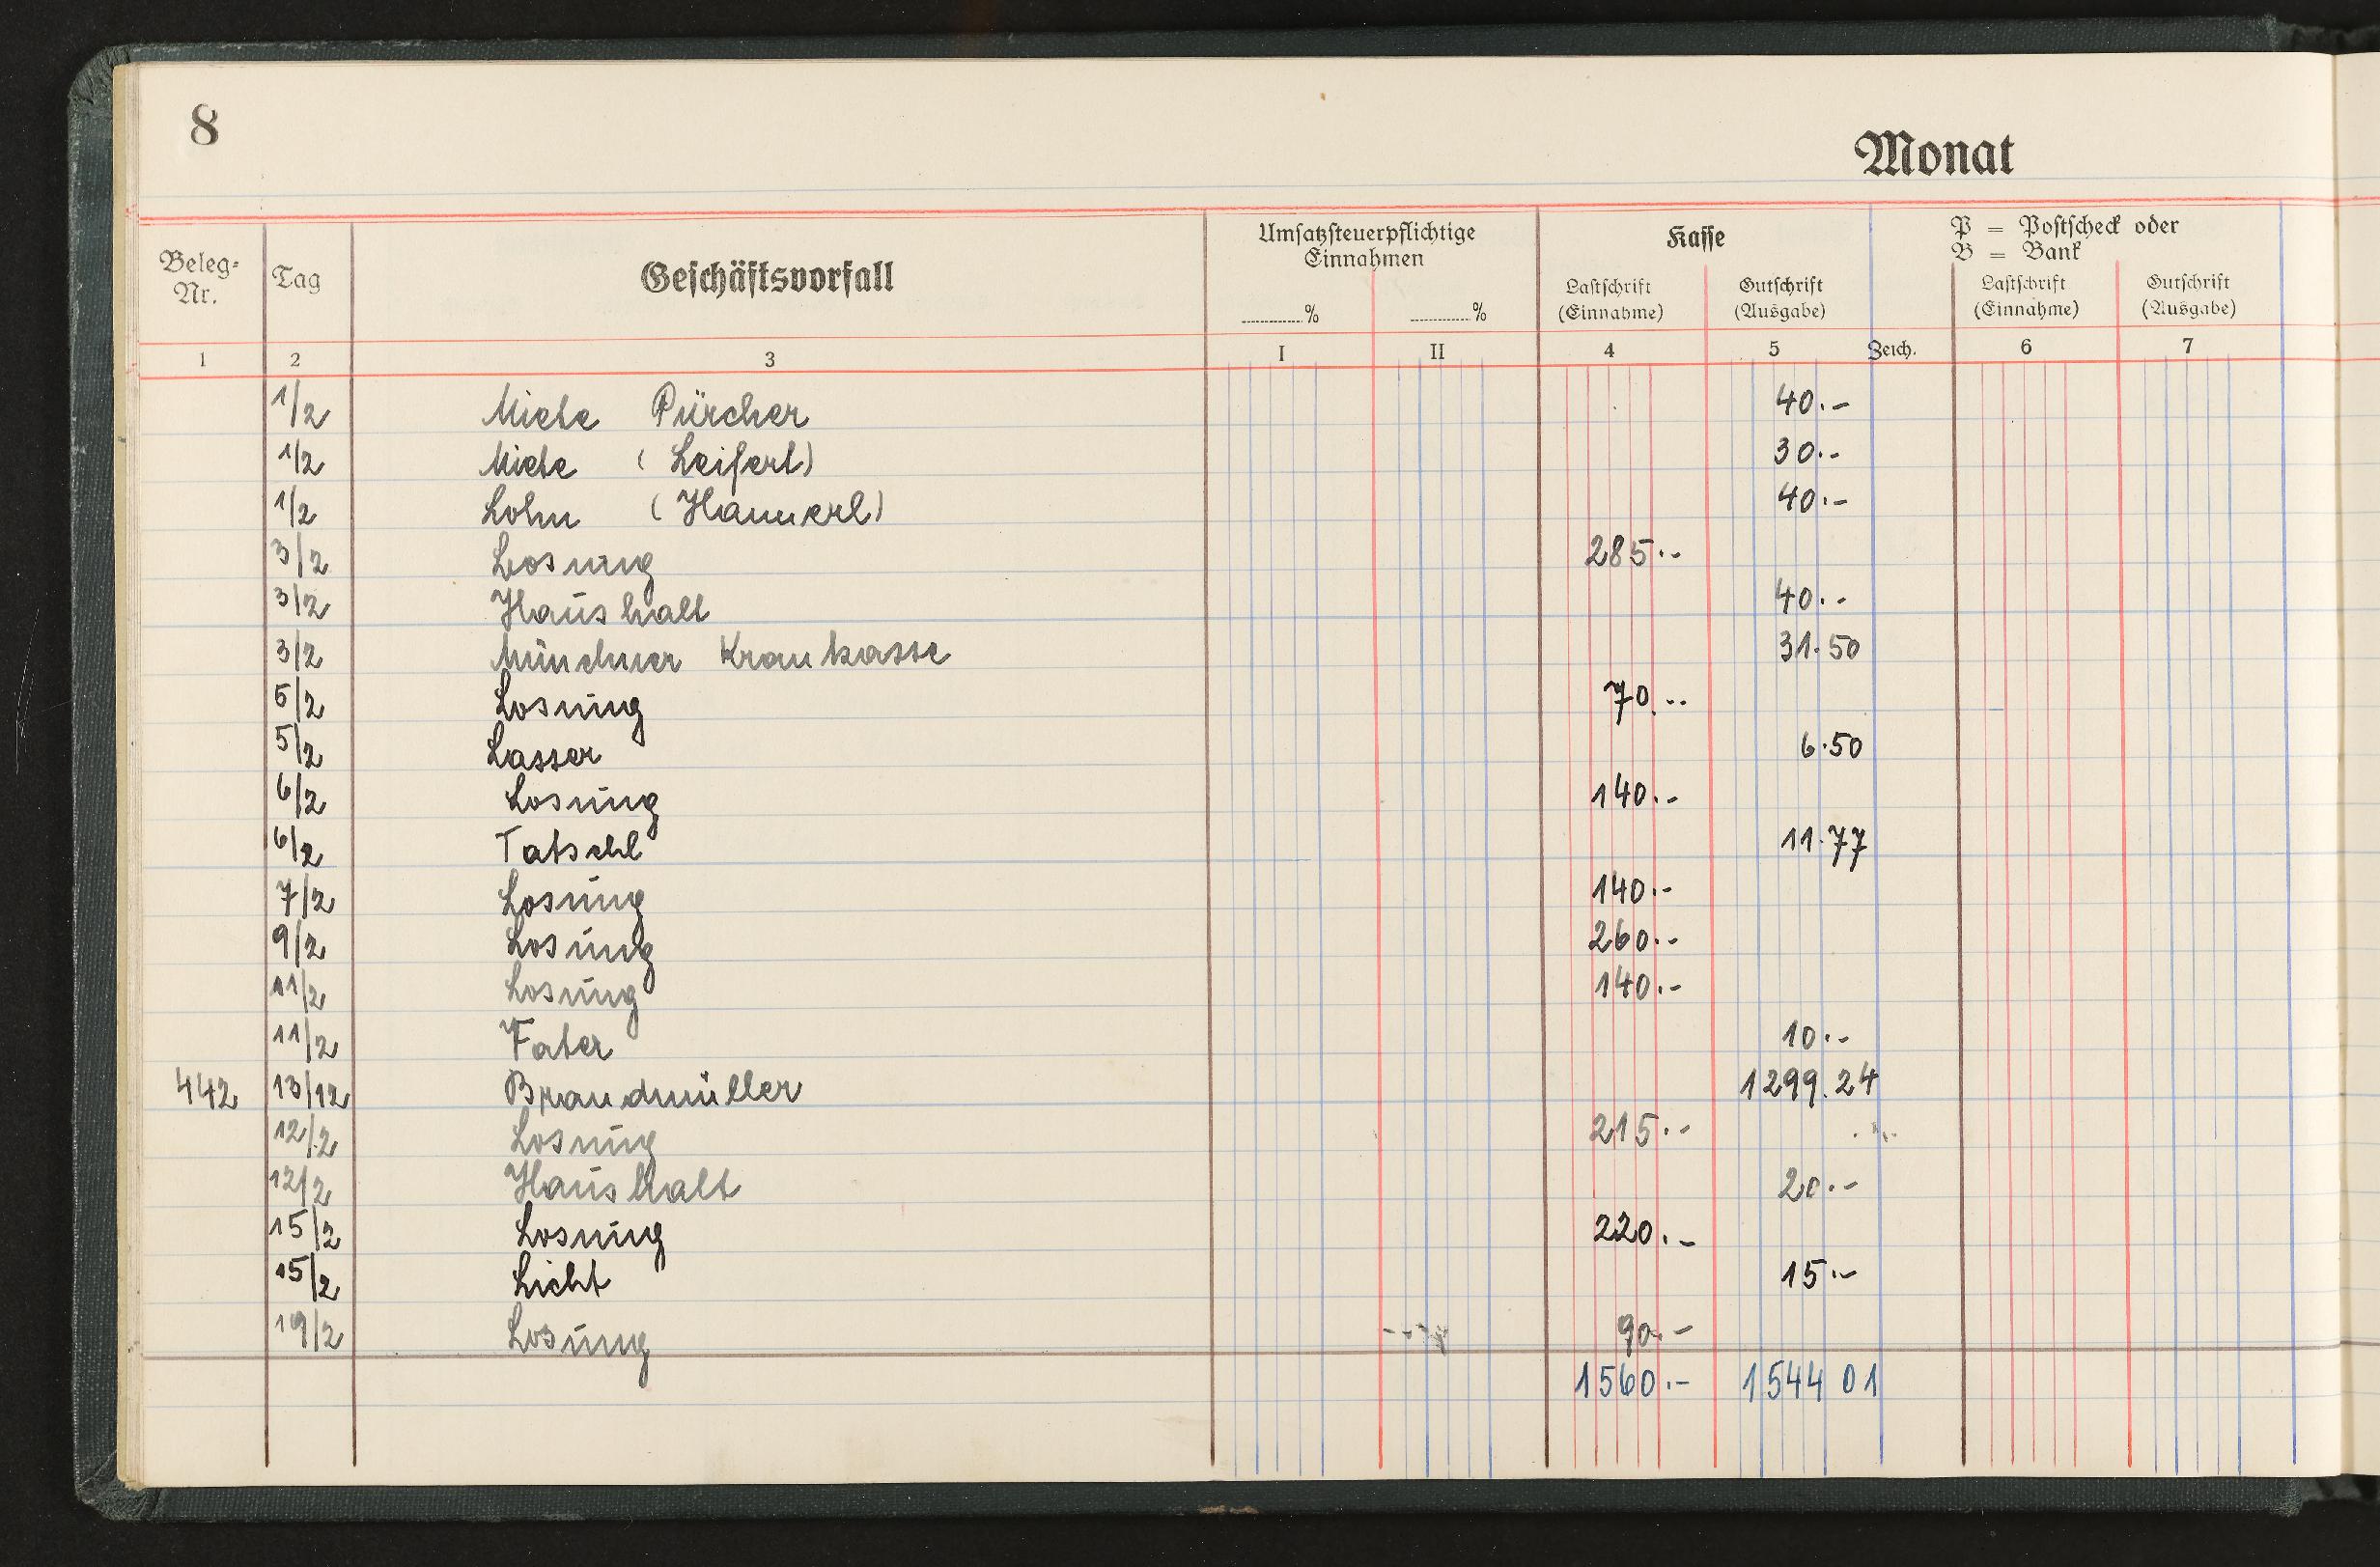 8
Monat
Beleg-Nr. Tag Geschäftsvorfall Umsatzsteuerpflichtige Einnahmen Kasse P = Postscheck oder B = Bank
% % Lastschrift (Einnahme) Gutschrift (Ausgabe) Lastschrift (Einnahme) Gutschrift (Ausgabe)
1 2 3 I II 4 5 Zeich. 6 7
1/2 Miete Pürcher 40.-
1/2 Miete (Leifert) 30.-
1/2 Lohn (Hannerl) 40.-
3/2 Losung 285.-
3/2 Haushalt 40.-
3/2 Münchner Krankasse 31.50
5/2 Losung 70.-
5/2 Lasser 6.50
6/2 Losung 140.-
6/2 Tatschl 11.77
7/2 Losung 140.-
9/2 Losung 260.-
11/2 Losung 140.-
11/2 Fater 10.-
442 13/12 Brandmüller 1299.24
12/2 Losung 215.-
12/2 Haushalt 20.-
15/2 Losung 220.-
15/2 Licht 15.-
19/2 Losung 90.-
1560.- 1544 01